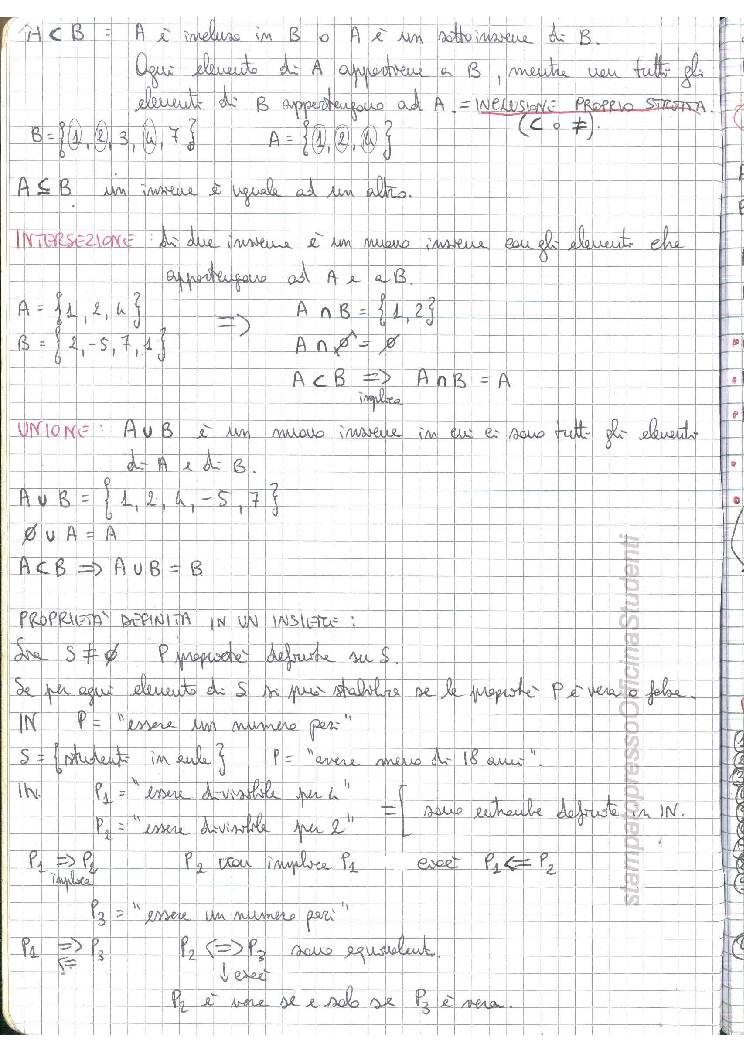 A ⊂ B = A è incluso in B o A è un sottoinsieme di B.
Ogni elemento di A appartiene a B, mentre non tutti gli
elementi di B appartengono ad A. = INCLUSIONE PROPRIO STRETTA.
(⊂ o ≠).
B = {1, 2, 3, 4, 7} A = {1, 2, 4}
A ⊆ B un insieme è uguale ad un altro.
INTERSEZIONE: di due insieme è un nuovo insieme con gli elementi che
appartengono ad A e a B.
A = {1, 2, 4} => A ∩ B = {1, 2}
B = {2, -5, 7, 1} A ∩ ∅ = ∅
A ⊂ B => A ∩ B = A
implica
UNIONE: A ∪ B è un nuovo insieme in cui ci sono tutti gli elementi
di A e di B.
A ∪ B = {1, 2, 4, -5, 7}
∅ ∪ A = A
A ⊂ B => A ∪ B = B
PROPRIETÀ DEFINITA IN UN INSIEME:
Sia S ≠ ∅ P proprietà definita su S.
Se per ogni elemento di S si può stabilire se la proprietà P è vera o falsa.
IN P = "essere un numero pari"
S = {studenti in aula} P = "avere meno di 18 anni".
IN. P1 = "essere divisibile per 4"
= [ sono entrambe definite in IN.
P2 = "essere divisibile per 2"
P1 => P2 P2 non implica P1 cioè P1 <= P2
implica
P3 = "essere un numero pari"
P1 => P3 P2 <=> P3 sono equivalenti.
<= ↓ cioè
P2 è vera se e solo se P3 è vera.
stampatopressoOfficinaStudenti